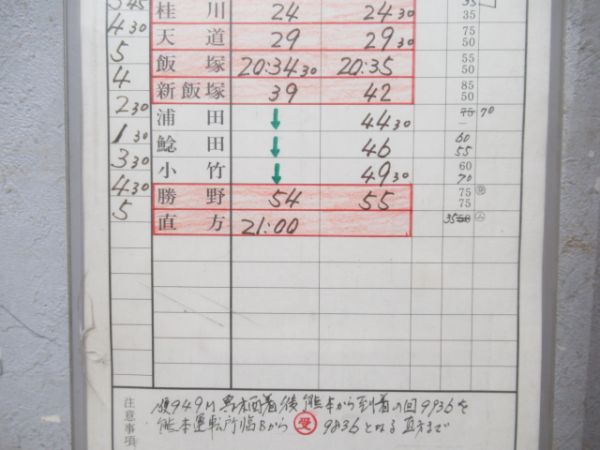 3 45
桂川 24 24 30 35 35
4 30
天道 29 29 30 75 50
5
飯塚 20:34 30 20:35 55 50
4
新飯塚 39 42 85 50
2 30
浦田 ↓ 44 30 75 70 —
1 30
鯰田 ↓ 46 60 55
3 30
小竹 ↓ 49 30 60 70
4 30
勝野 54 55 75 75
5
直方 21:00 35
注意事項
後 熊本から到着の回9936を
熊本運転所 から 受 9836となる 直方まで